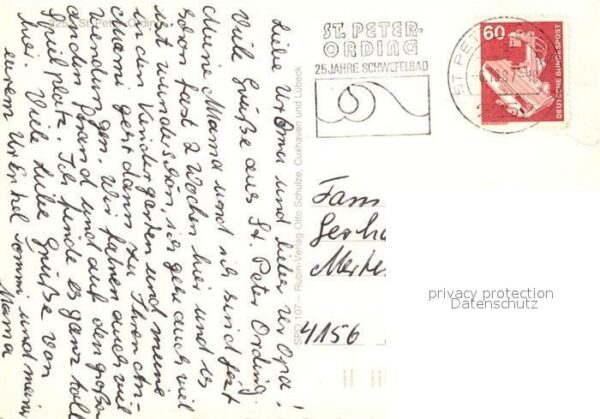 2252 St. Peter-Ording
Liebe Ur Oma und lieber Ur Opa!
Viele Grüße aus St. Peter Ording.
Meine Mama und ich sind jetzt
schon fast 2 Wochen hier und es
ist wunderschön, ich gehe auch viel
in den Kindergarten und meine
Mami geht dann zu Ihren An-
wendungen. Wir fahren auch viel
an den Strand und auf den großen
Spielplatz. Ich finde es ganz toll
hier. Viele liebe Grüße von
eurem Ur Enkel Tommi und meine
Mama
SPO 107 – Rubin-Verlag Otto Schulze, Cuxhaven und Lübeck
ST. PETER-
ORDING
25 JAHRE SCHWEFELBAD
ST PET
60
DEUTSCHE BUNDESPOST
Fam
Gerha
Merte
4156
privacy protection
Datenschutz